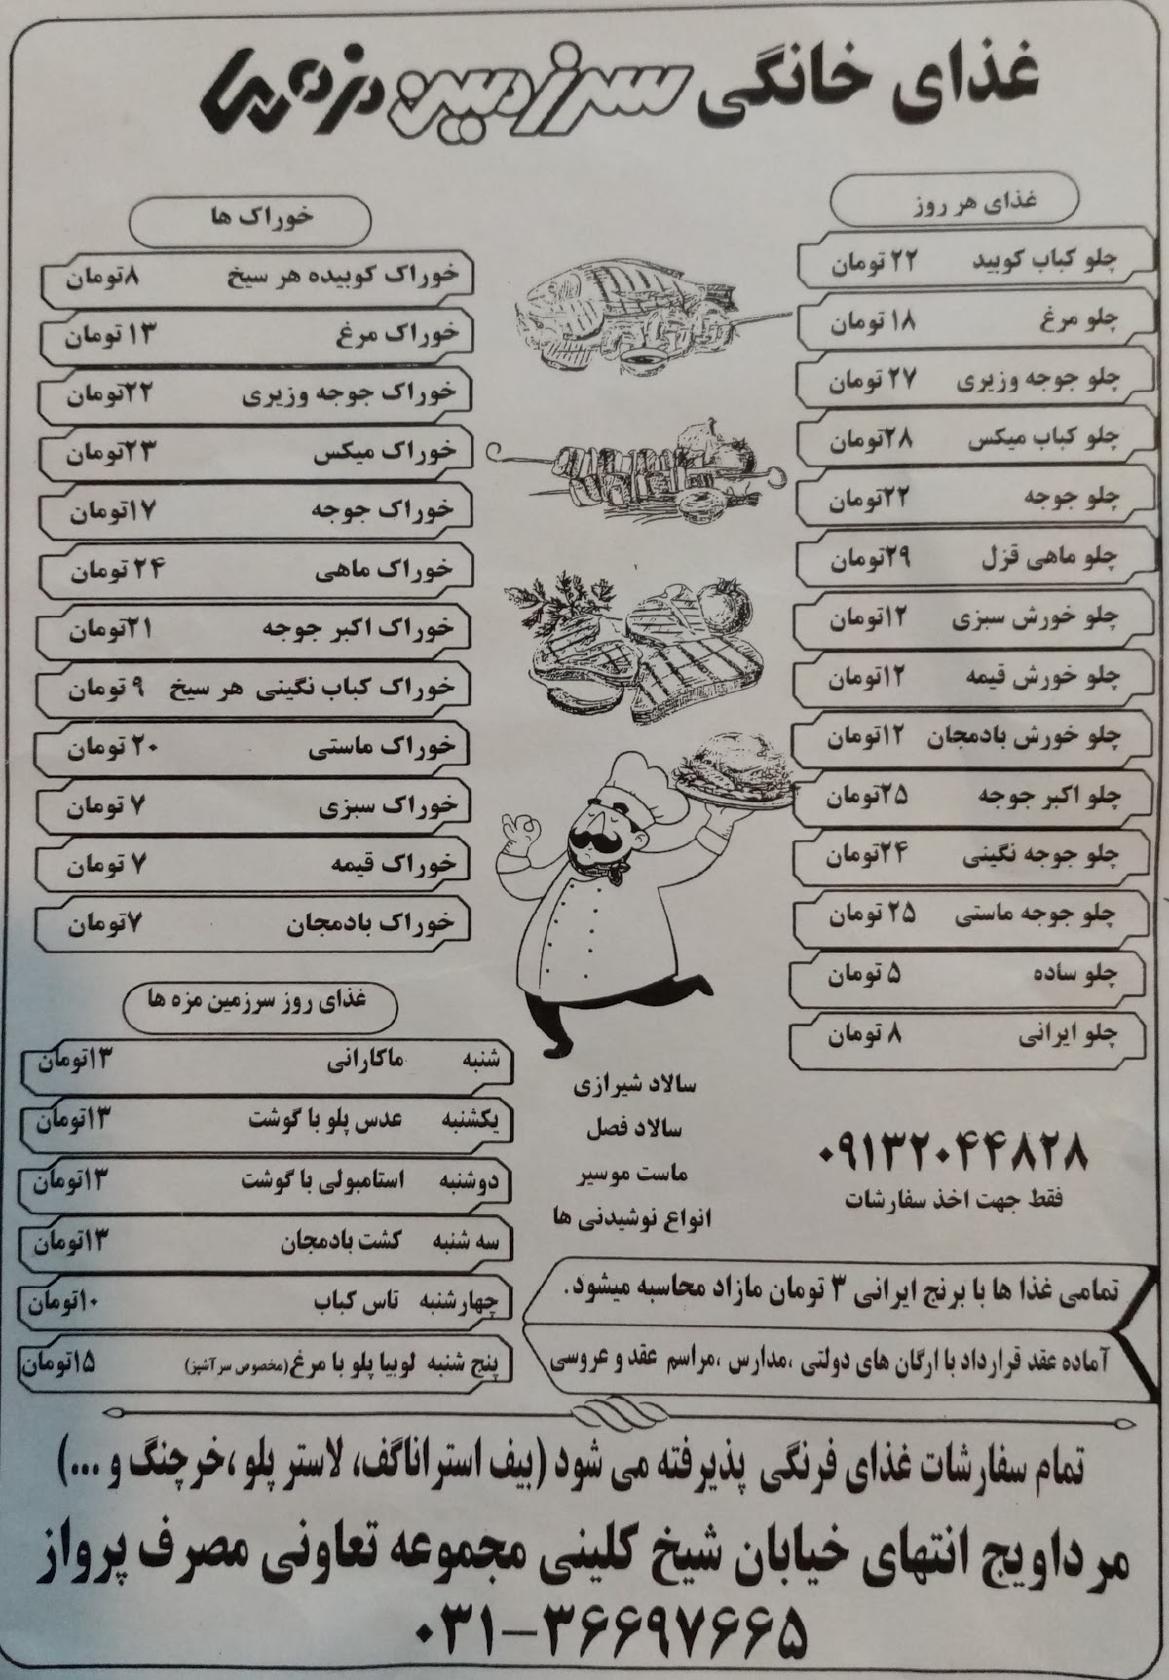 غذای خانگی سرزمین مزه ها
غذای هر روز
چلو کباب کوبید ۲۲ تومان
چلو مرغ ۱۸ تومان
چلو جوجه وزیری ۲۷ تومان
چلو کباب میکس ۲۸تومان
چلو جوجه ۲۲تومان
چلو ماهی قزل ۲۹تومان
چلو خورش سبزی ۱۲تومان
چلو خورش قیمه ۱۲تومان
چلو خورش بادمجان ۱۲تومان
چلو اکبر جوجه ۲۵تومان
چلو جوجه نگینی ۲۴تومان
چلو جوجه ماستی ۲۵ تومان
چلو ساده ۵ تومان
چلو ایرانی ۸ تومان
خوراک ها
خوراک کوبیده هر سیخ ۸تومان
خوراک مرغ ۱۳ تومان
خوراک جوجه وزیری ۲۲تومان
خوراک میکس ۲۳تومان
خوراک جوجه ۱۷تومان
خوراک ماهی ۲۴ تومان
خوراک اکبر جوجه ۲۱تومان
خوراک کباب نگینی هر سیخ ۹ تومان
خوراک ماستی ۲۰ تومان
خوراک سبزی ۷ تومان
خوراک قیمه ۷ تومان
خوراک بادمجان ۷تومان
غذای روز سرزمین مزه ها
شنبه ماکارانی ۱۳تومان
یکشنبه عدس پلو با گوشت ۱۳تومان
دوشنبه استامبولی با گوشت ۱۳تومان
سه شنبه کشت بادمجان ۱۳تومان
چهارشنبه تاس کباب ۱۰تومان
پنج شنبه لوبیا پلو با مرغ(مخصوص سرآشپز) ۱۵تومان
سالاد شیرازی
سالاد فصل
ماست موسیر
انواع نوشیدنی ها
۰۹۱۳۲۰۴۴۸۲۸
فقط جهت اخذ سفارشات
تمامی غذا ها با برنج ایرانی ۳ تومان مازاد محاسبه میشود.
آماده عقد قرارداد با ارگان های دولتی ،مدارس ،مراسم عقد و عروسی
تمام سفارشات غذای فرنگی پذیرفته می شود (بیف استراناگف، لاستر پلو ،خرچنگ و ...)
مرداویج انتهای خیابان شیخ کلینی مجموعه تعاونی مصرف پرواز
۰۳۱-۳۶۶۹۷۶۶۵